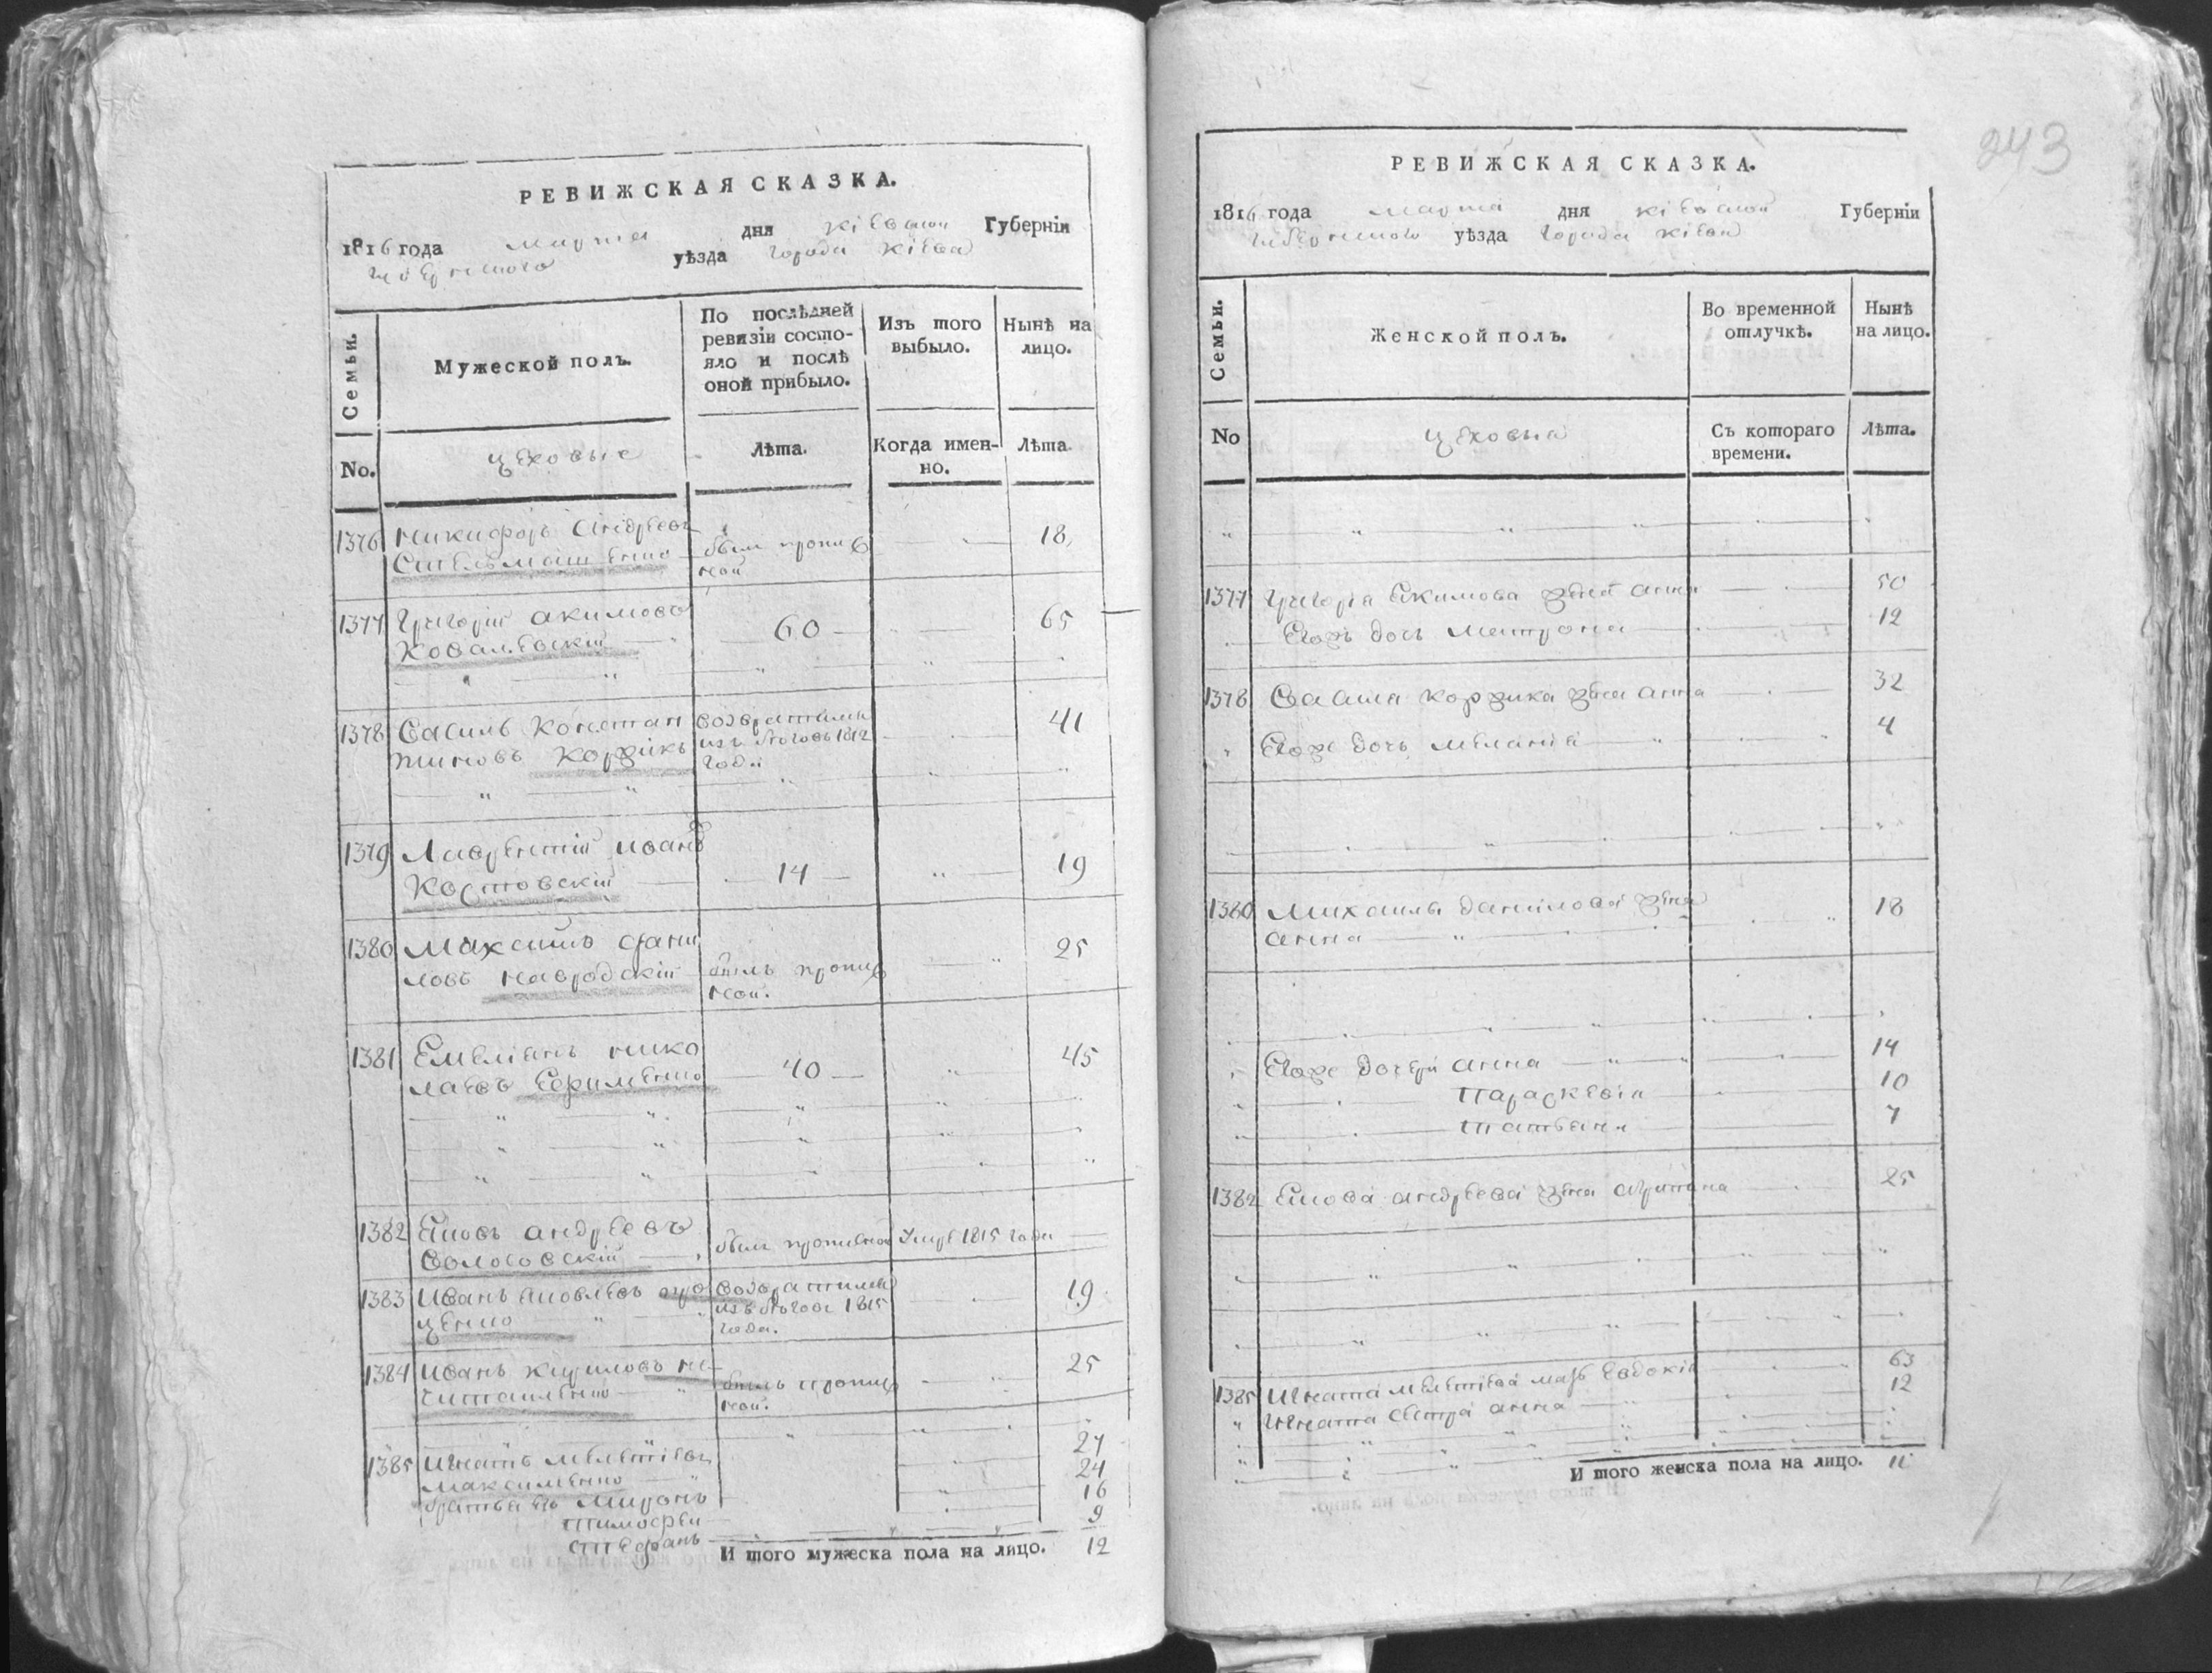 РЕВИЖСКАЯ СКАЗКА.
1816 года марта дня Кіевской Губерніи
уѣзда города Кіева
Семьи.
Мужеской полъ.
По послѣдней ревизіи состояло и послѣ оной прибыло.
Изъ того выбыло.
Нынѣ на лицо.
No.
цеховые
Лѣта.
Когда именно.
Лѣта.
1376 Никифоръ Андреевъ
18
1377 Григорій Акимовъ
Ковалевскій 60 65
1378 Василь Констан
тиновъ Коржикъ
возвратился
изъ бѣговъ 1812
года
41
1379 Лаврентій Иванов
14 19
1380 Михаилъ Дани
ловъ Навродскій
былъ пропис
ной.
25
1381 Емеліанъ Нико
лаевъ Ефименко 40 45
1382 Яковъ Андреевъ
былъ прописной Умре 1815 года
1383 Иванъ Яковлевъ
ценко
возвратился
изъ бѣговъ 1815
года.
19
1384 Иванъ Кириловъ
былъ пропис
ной.
25
1385 Игнатъ Мелетіевъ
Максименко
братья его Миронъ
Тимофей
Стефанъ
27
24
16
9
И того мужеска пола на лицо. 12
243
РЕВИЖСКАЯ СКАЗКА.
1816 года марта дня Кіевской Губерніи
уѣзда города Кіева
Семьи.
Женской полъ.
Во временной отлучкѣ.
Нынѣ на лицо.
No
цеховыя
Съ котораго времени.
Лѣта.
1377 Григорія Екимова жена Анна 50
Егожъ дочь Матрона 12
1378 Василя Коржика жена Анна 32
Егоже дочь Меланія 4
1380 Михаила Данилова жена
Анна 18
Егоже дочери Анна 14
Параскевія 10
Татьяна 7
1382 Якова Андреева жена 25
1385 Игната Мелетіева мать Евдокія 63
Игната сестра Анна 12
И того женска пола на лицо. 11